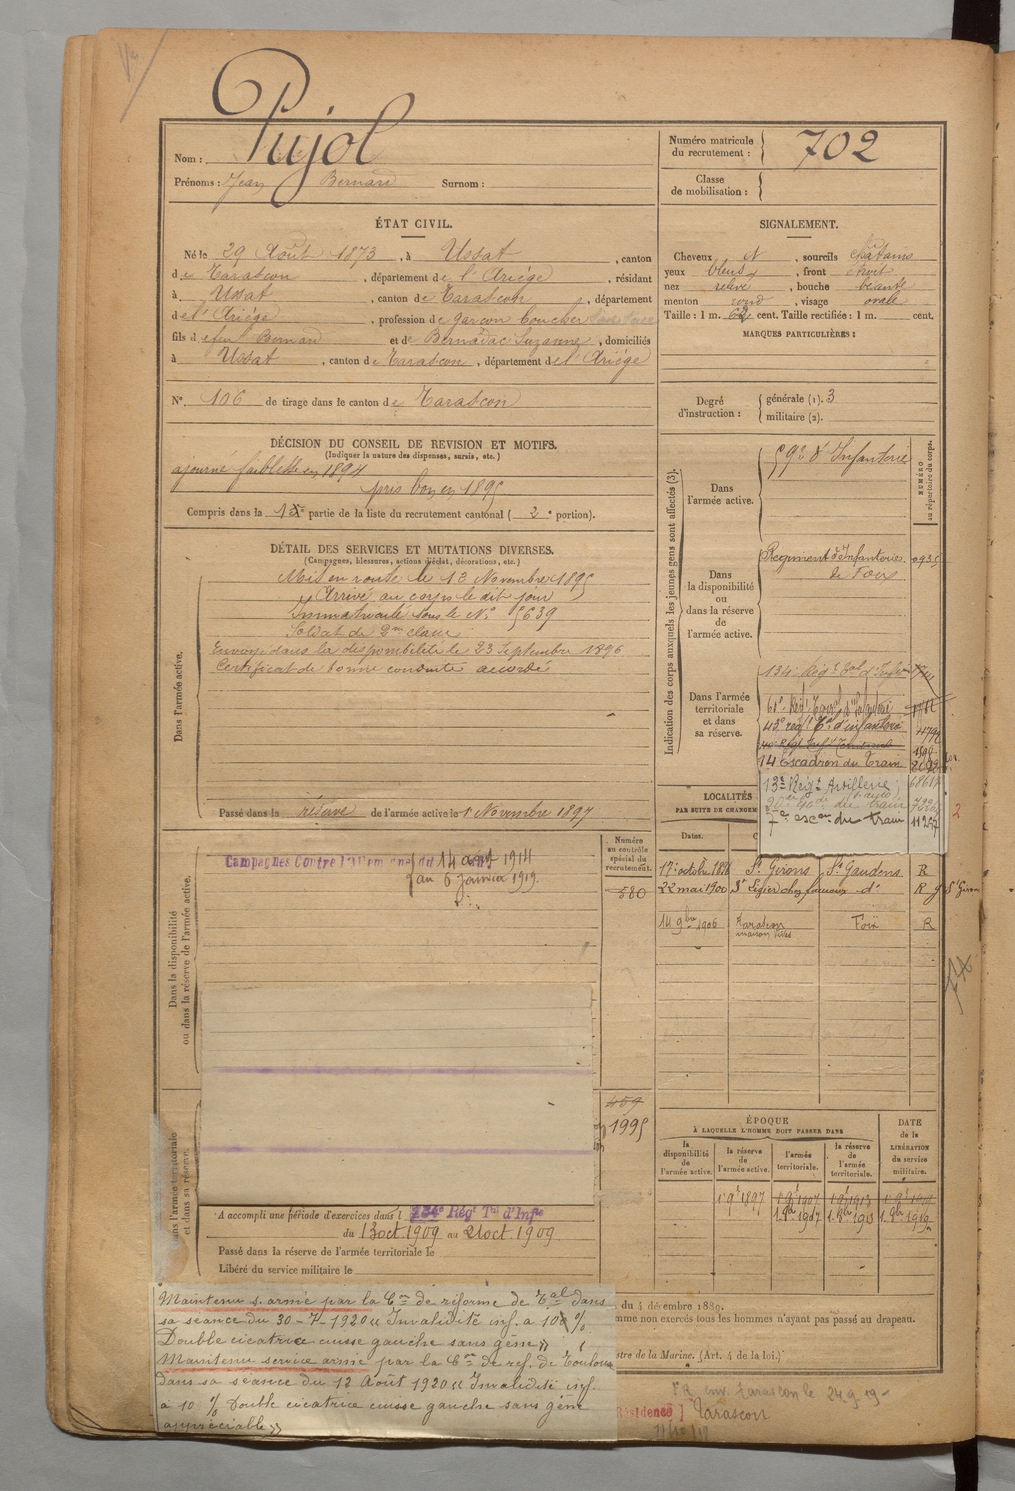 Pujol
Nom :
Prénoms : Jean Bernard Surnom :
Numéro matricule
du recrutement : 702
Classe
de mobilisation :
ÉTAT CIVIL.
Né le 29 Août 1873, à Ussat, canton
de Tarascon, département de l'Ariége, résidant
à Ussat, canton de Tarascon, département
de l'Ariége, profession de garçon boucher
fils de feu Bernard et de Bernadac Suzanne, domiciliés
à Ussat, canton de Tarascon, département de l'Ariége
N° 106 de tirage dans le canton de Tarascon
SIGNALEMENT.
Cheveux N, sourcils châtains
yeux bleus, front étroit
nez relevé, bouche béante
menton rond, visage ovale
Taille : 1 m. 62 cent. Taille rectifiée : 1 m. cent.
MARQUES PARTICULIÈRES :
Degré
d'instruction :
générale (1). 3
militaire (2).
DÉCISION DU CONSEIL DE REVISION ET MOTIFS.
(Indiquer la nature des dispenses, sursis, etc.)
ajourné faiblesse en 1894
pris bon en 1895
Compris dans la 1e partie de la liste du recrutement cantonal ( 2e portion).
DÉTAIL DES SERVICES ET MUTATIONS DIVERSES.
(Campagnes, blessures, actions d'éclat, décorations, etc.)
Dans l'armée active.
Mis en route le 13 Novembre 1895
Arrivé au corps le dit jour
Immatriculé sous le N° 5639
Soldat de 2me classe
Envoyé dans la disponibilité le 23 Septembre 1896
Certificat de bonne conduite accordé
Passé dans la réserve de l'armée active le 1er Novembre 1897
Indication des corps auxquels les jeunes gens sont affectés (3).
NUMÉRO
au répertoire du corps.
Dans
l'armée active.
59e d'Infanterie
Dans
la disponibilité
ou
dans la réserve
de
l'armée active.
Régiment d'Infanterie
de Foix
0935
Dans l'armée
territoriale
et dans
sa réserve.
134e Régt Tal d'Infrie
61e Régt Terral d'Infanterie
45e regt T. d'infanterie
14 Escadron du Train
13e Regt Artillerie
7e escon du train 11257
Dans la disponibilité
ou dans la réserve de l'armée active.
Campagnes Contre l'Allemagne du 14 août 1914
au 6 Janvier 1919.
Numéro
au contrôle
spécial du
recrutement.
580
459
1995
LOCALITÉS
PAR SUITE DE CHANGEM
Dates.
17 octobre 1898 St Girons St Gaudens R
25 mai 1900 St Girons
14 9bre 1906 Tarascon Foix R
Dans l'armée territoriale
et dans sa réserve.
A accompli une période d'exercices dans l 134e Régt Tal d'Infie
du 13 oct. 1909 au 21 oct. 1909
Passé dans la réserve de l'armée territoriale le
Libéré du service militaire le
ÉPOQUE
À LAQUELLE L'HOMME DOIT PASSER DANS
DATE
de la
LIBÉRATION
du service
militaire.
la
disponibilité
de
l'armée active.
la réserve
de
l'armée active.
l'armée
territoriale.
la réserve
de
l'armée
territoriale.
Maintenu s. armé par la Con de réforme de Tal dans
sa séance du 30-7-1920 « Invalidité inf. à 10 %
Double cicatrice cuisse gauche sans gêne »
Maintenu service armé par la Con de réf. de Toulouse
dans sa séance du 12 Août 1920 « Invalidité inf.
à 10 % Double cicatrice cuisse gauche sans gêne
appréciable »
du 4 décembre 1889.
mme non exercés tous les hommes n'ayant pas passé au drapeau.
stre de la Marine. (Art. 4 de la loi.)
Tarascon le 24 9 19
Résidence ] Tarascon